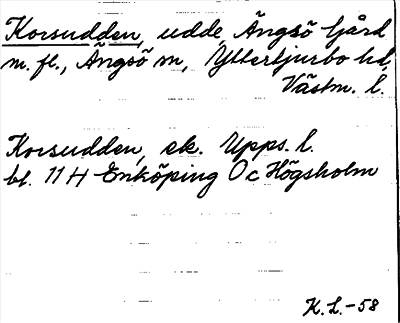 Korsudden, udde, Ängsö Gård
m. fl., Ängsö sn, Yttertjurbo hd,
Västm. l.
Korsudden, ek. Upps. l.
bl. 11 H Enköping Oc Högsholm
K. L. -58